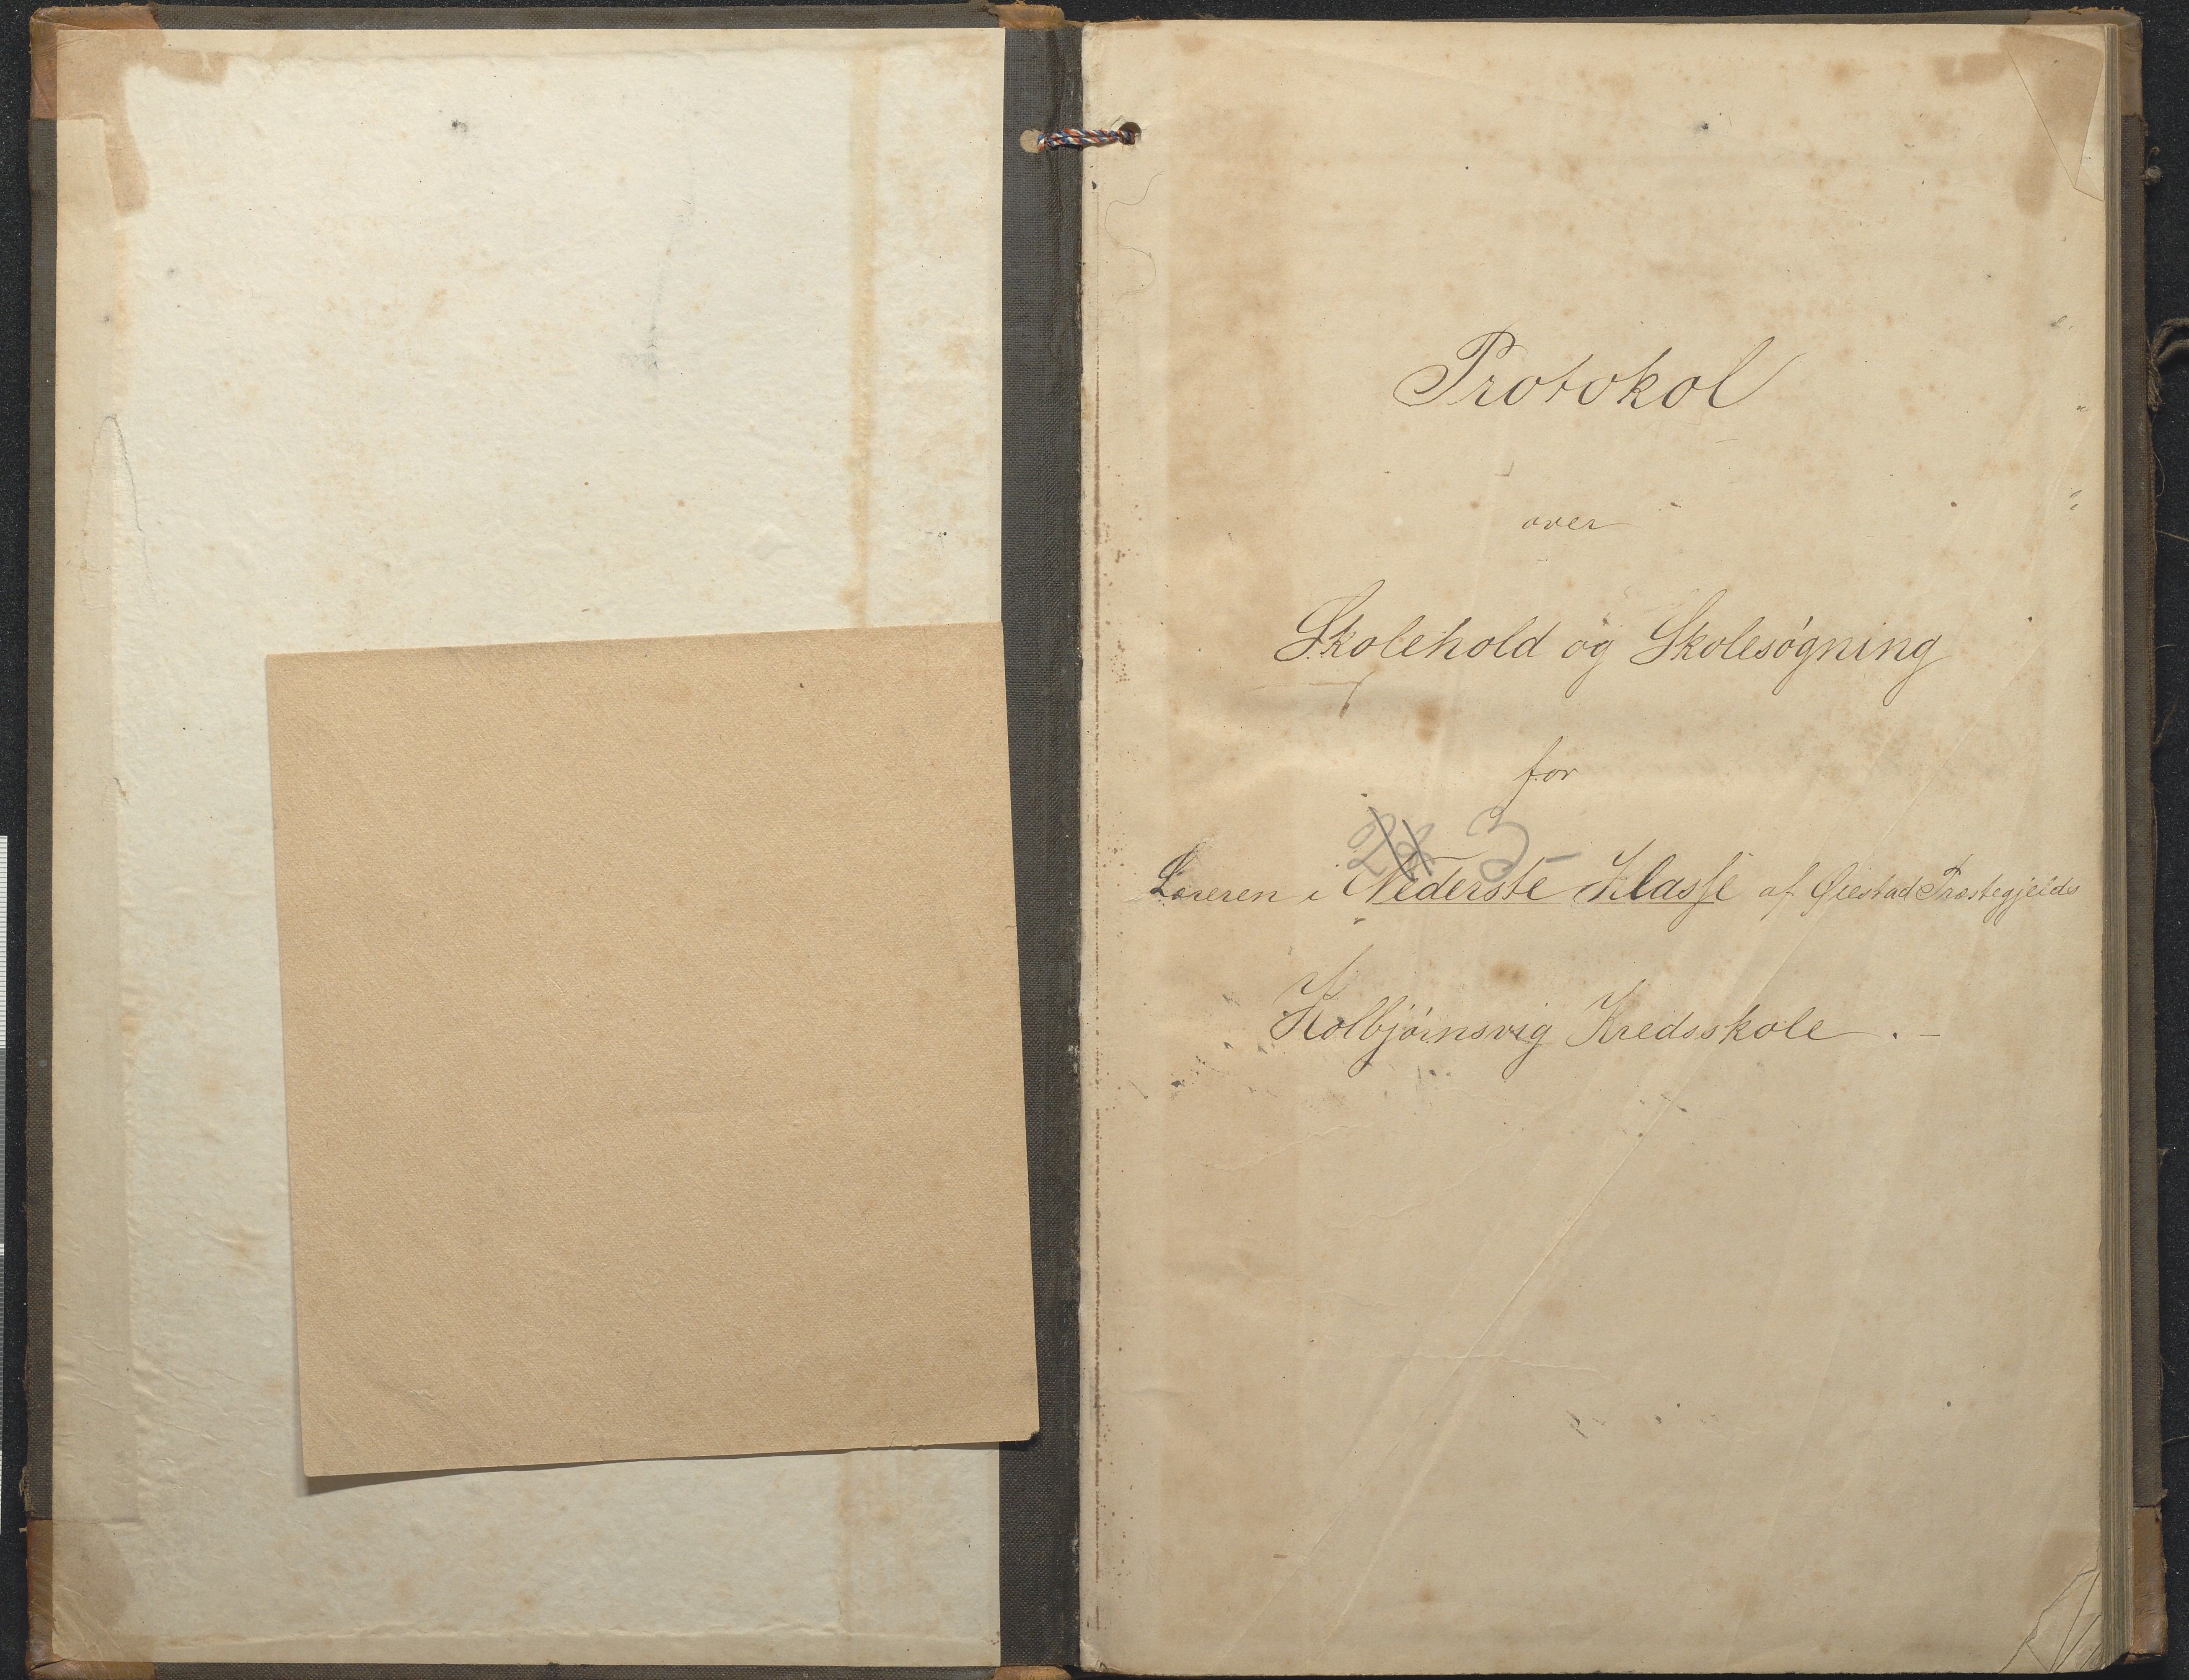 Protokol
over
Skolehold og Skolesøgning
for
3
Læreren i Nederste Klasse af Øiestad Præstegjelds
Kolbjørnsvig Kredsskole . –